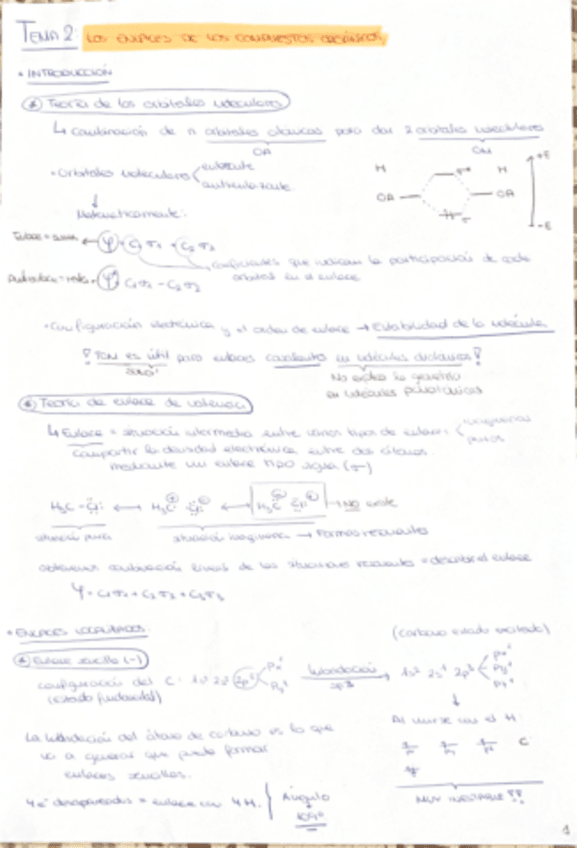 TEMA 2: LOS ENLACES DE LOS COMPUESTOS ORGÁNICOS
• INTRODUCCIÓN
Teoría de los orbitales moleculares
↳ Combinación de n orbitales atómicos para dar 2 orbitales moleculares
OA OM
• Orbitales moleculares enlazante
antienlazante
Matemáticamente:
H H +E
OA OA
-E
Enlace = suma ← Ψ = C₁ σ₁ + C₂ σ₂
coeficientes que indican la participación de cada
orbital en el enlace
Antienlace = resta ← Ψ* C₁σ₁ - C₂σ₂
• Configuración electrónica y el orden de enlace → Estabilidad de la molécula
! TOM es útil para enlaces covalentes en moléculas diatómicas !
No explica la geometría
en moléculas poliatómicas
Teoría de enlace de valencia
↳ Enlace = situación intermedia entre varios tipos de enlace
puros
compartir la densidad electrónica entre dos átomos
mediante un enlace tipo sigma (σ)
H₃C - Cl: ⟷ H₃C⊕ :Cl:⊖ ⟷ H₃C⊖ Cl⊕ → NO existe
situación pura situación imaginaria → Formas resonantes
obtenemos combinación lineal de las situaciones resonantes = describe el enlace
Ψ = C₁σ₁ + C₂σ₂ + C₃σ₃
• ENLACES LOCALIZADOS:
(carbono estado excitado)
Enlace sencillo (-)
configuración del C: 1s² 2s² 2p² Px¹ Py¹ hibridación sp³ → 1s² 2s¹ 2p³ Px¹ Py¹ Pz¹
(estado fundamental)
Al unirse con el H:
La hibridación del átomo de carbono es lo que
va a generar que pueda formar
enlaces sencillos.
C
4 e⁻ desapareados = enlace con 4 H. } Ángulo
109º
MUY INESTABLE !!
1